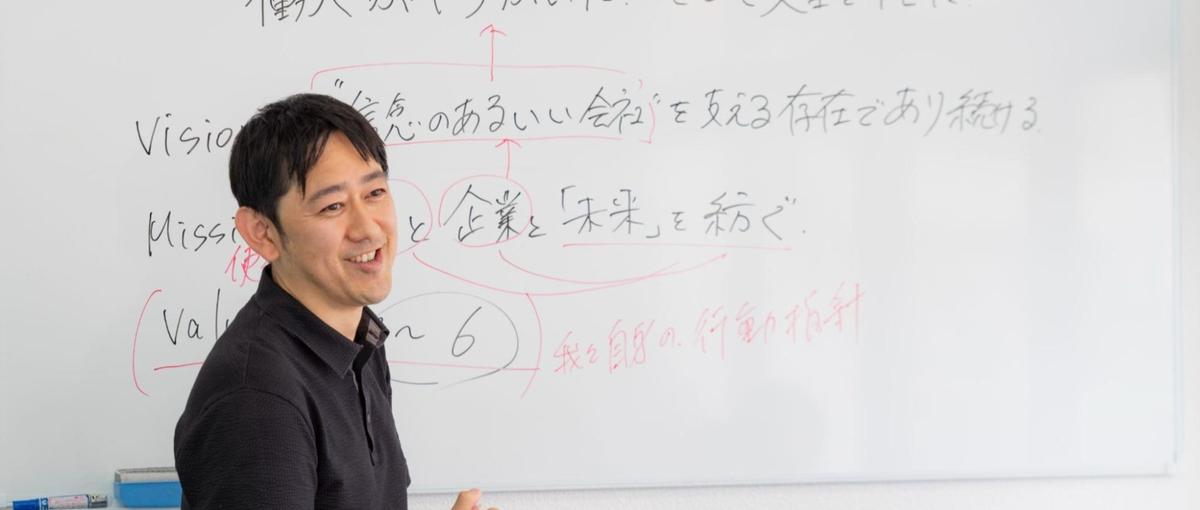 働く
Visio "信念のあるいい会社"を支える存在であり続ける.
Missi と企業と「未来」を紡ぐ.
使
Val ~ 6
我々自身の行動指針